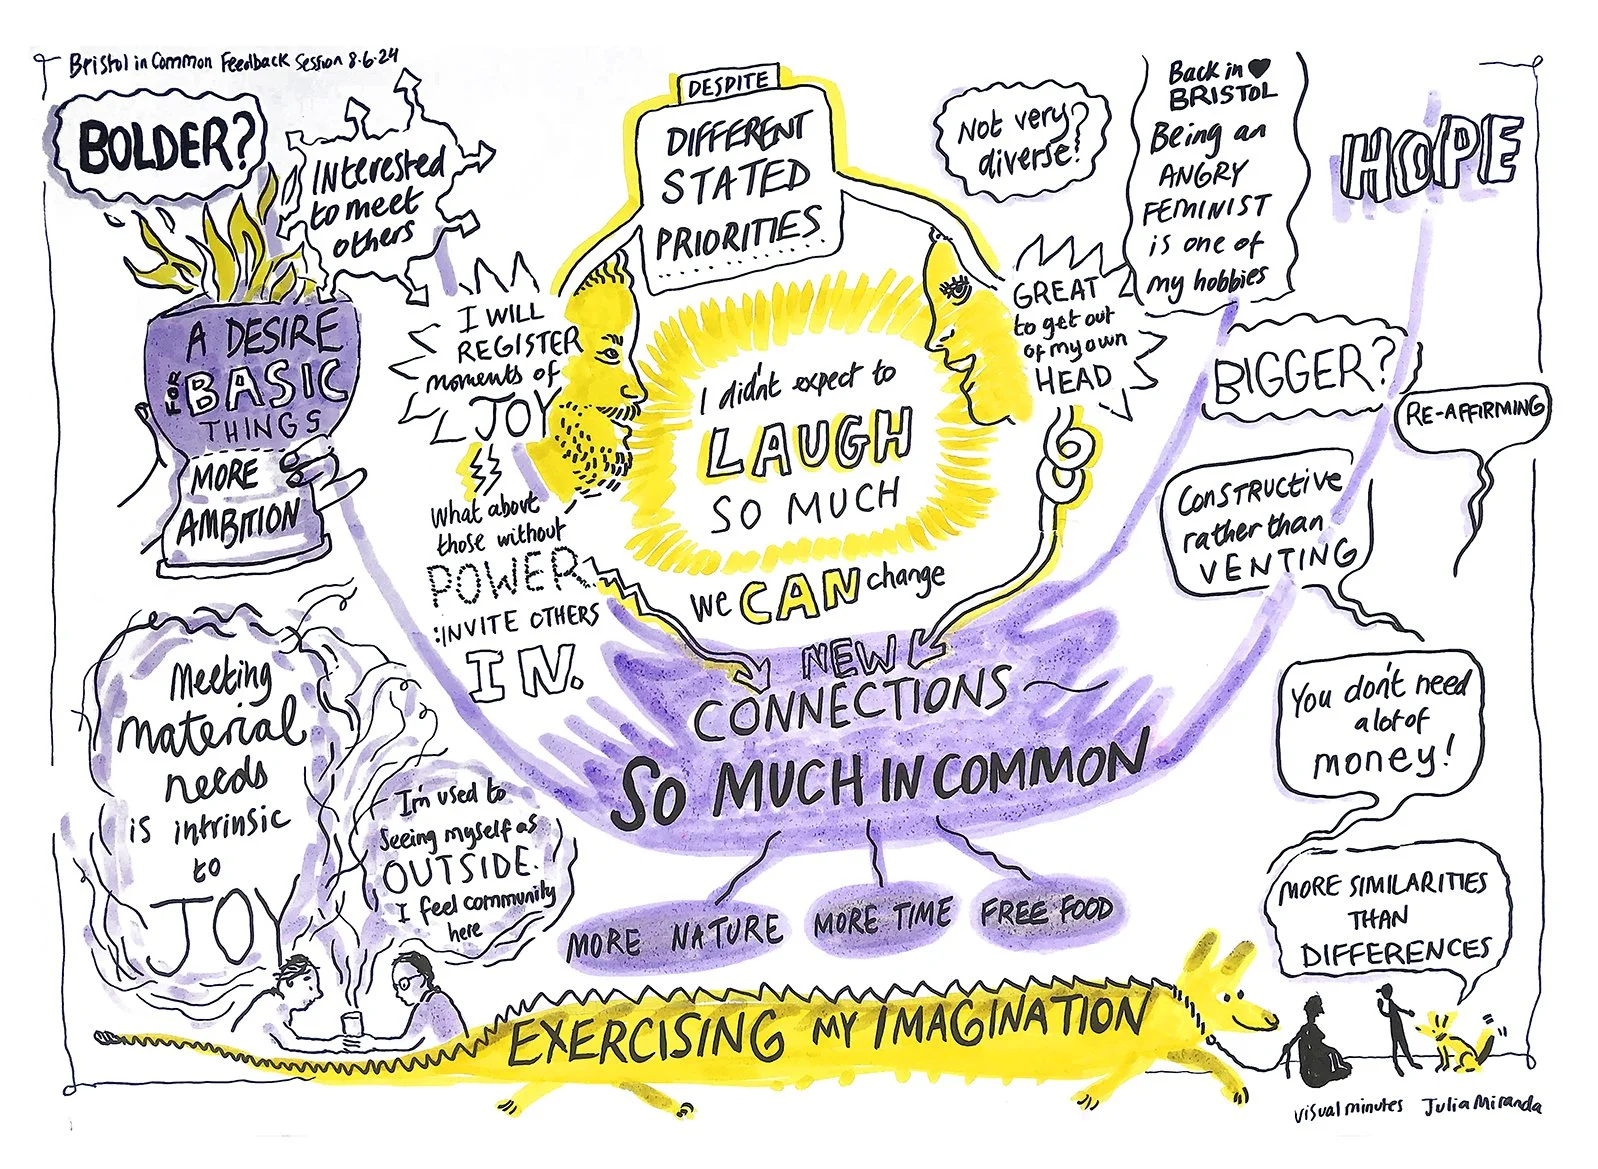 Bristol in Common Feedback Session 8.6.24
BOLDER?
INterested
to meet
others
A DESIRE
FOR BASIC
THINGS
MORE
AMBITION
I WILL
REGISTER
moments of
JOY
What about
those without
POWER
:INVITE OTHERS
IN.
DESPITE
DIFFERENT
STATED
PRIORITIES
I didn't expect to
LAUGH
SO MUCH
we CAN change
NEW
CONNECTIONS
SO MUCH IN COMMON
MORE NATURE
MORE TIME
FREE FOOD
Not very
diverse?
GREAT
to get out
of my own
HEAD
Back in ♥
BRISTOL
Being an
ANGRY
FEMINIST
is one of
my hobbies
HOPE
BIGGER?
RE-AFFIRMING
CONSTRUCTIVE
rather than
VENTING
You don't need
a lot of
money!
MORE SIMILARITIES
THAN
DIFFERENCES
Meeting
material
needs
is intrinsic
to
JOY
I'm used to
seeing myself as
OUTSIDE.
I feel community
here
EXERCISING MY IMAGINATION
visual minutes Julia Miranda